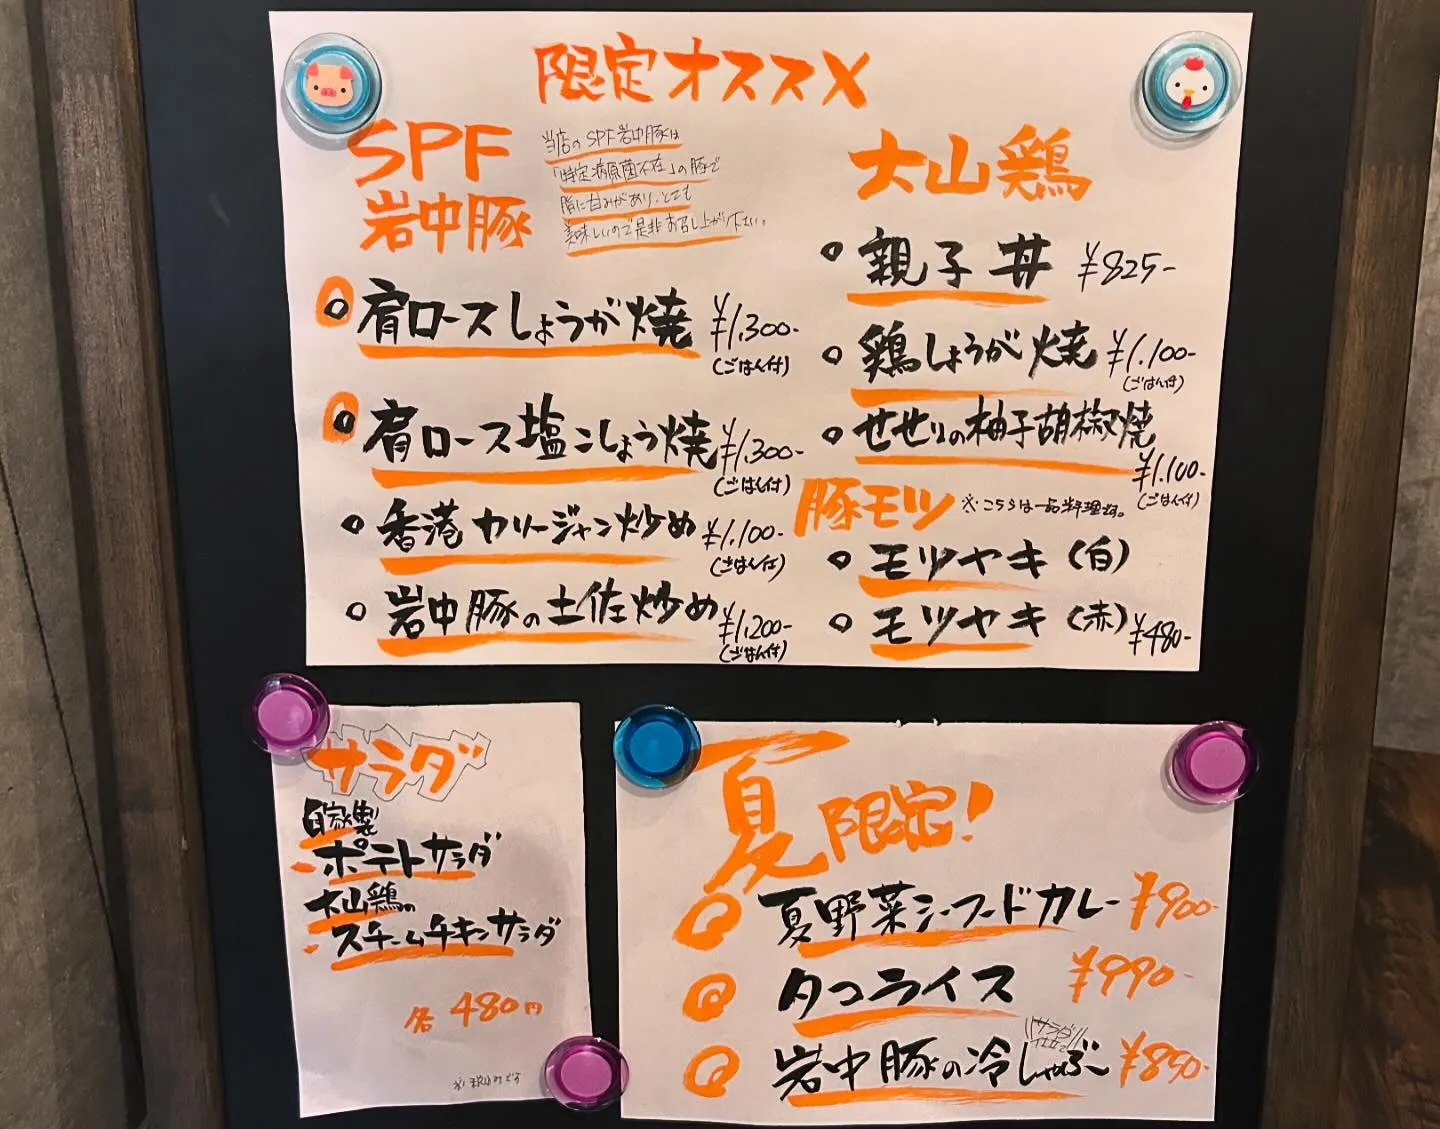 限定オススメ
SPF
岩中豚
当店のSPF岩中豚は
「特定病原菌不在」の豚で
脂に甘みがあり、とても
美味しいので是非お召し上がり下さい。
肩ロースしょうが焼 ¥1.300-
(ごはん付)
肩ロース塩こしょう焼 ¥1.300-
(ごはん付)
香港カリージャン炒め ¥1.100-
(ごはん付)
岩中豚の土佐炒め ¥1.200-
(ごはん付)
大山鶏
親子丼 ¥825-
鶏しょうが焼 ¥1.100-
(ごはん付)
せせりの柚子胡椒焼
¥1.100-
(ごはん付)
豚モツ ※こちらは一品料理です。
モツヤキ(白)
モツヤキ(赤) ¥480-
サラダ
自家製
ポテトサラダ
大山鶏の
スチームチキンサラダ
各 480円
※税込みです
夏限定!
夏野菜シーフードカレー ¥900-
タコライス ¥990-
サラダ
仕立て
岩中豚の冷しゃぶ ¥850-